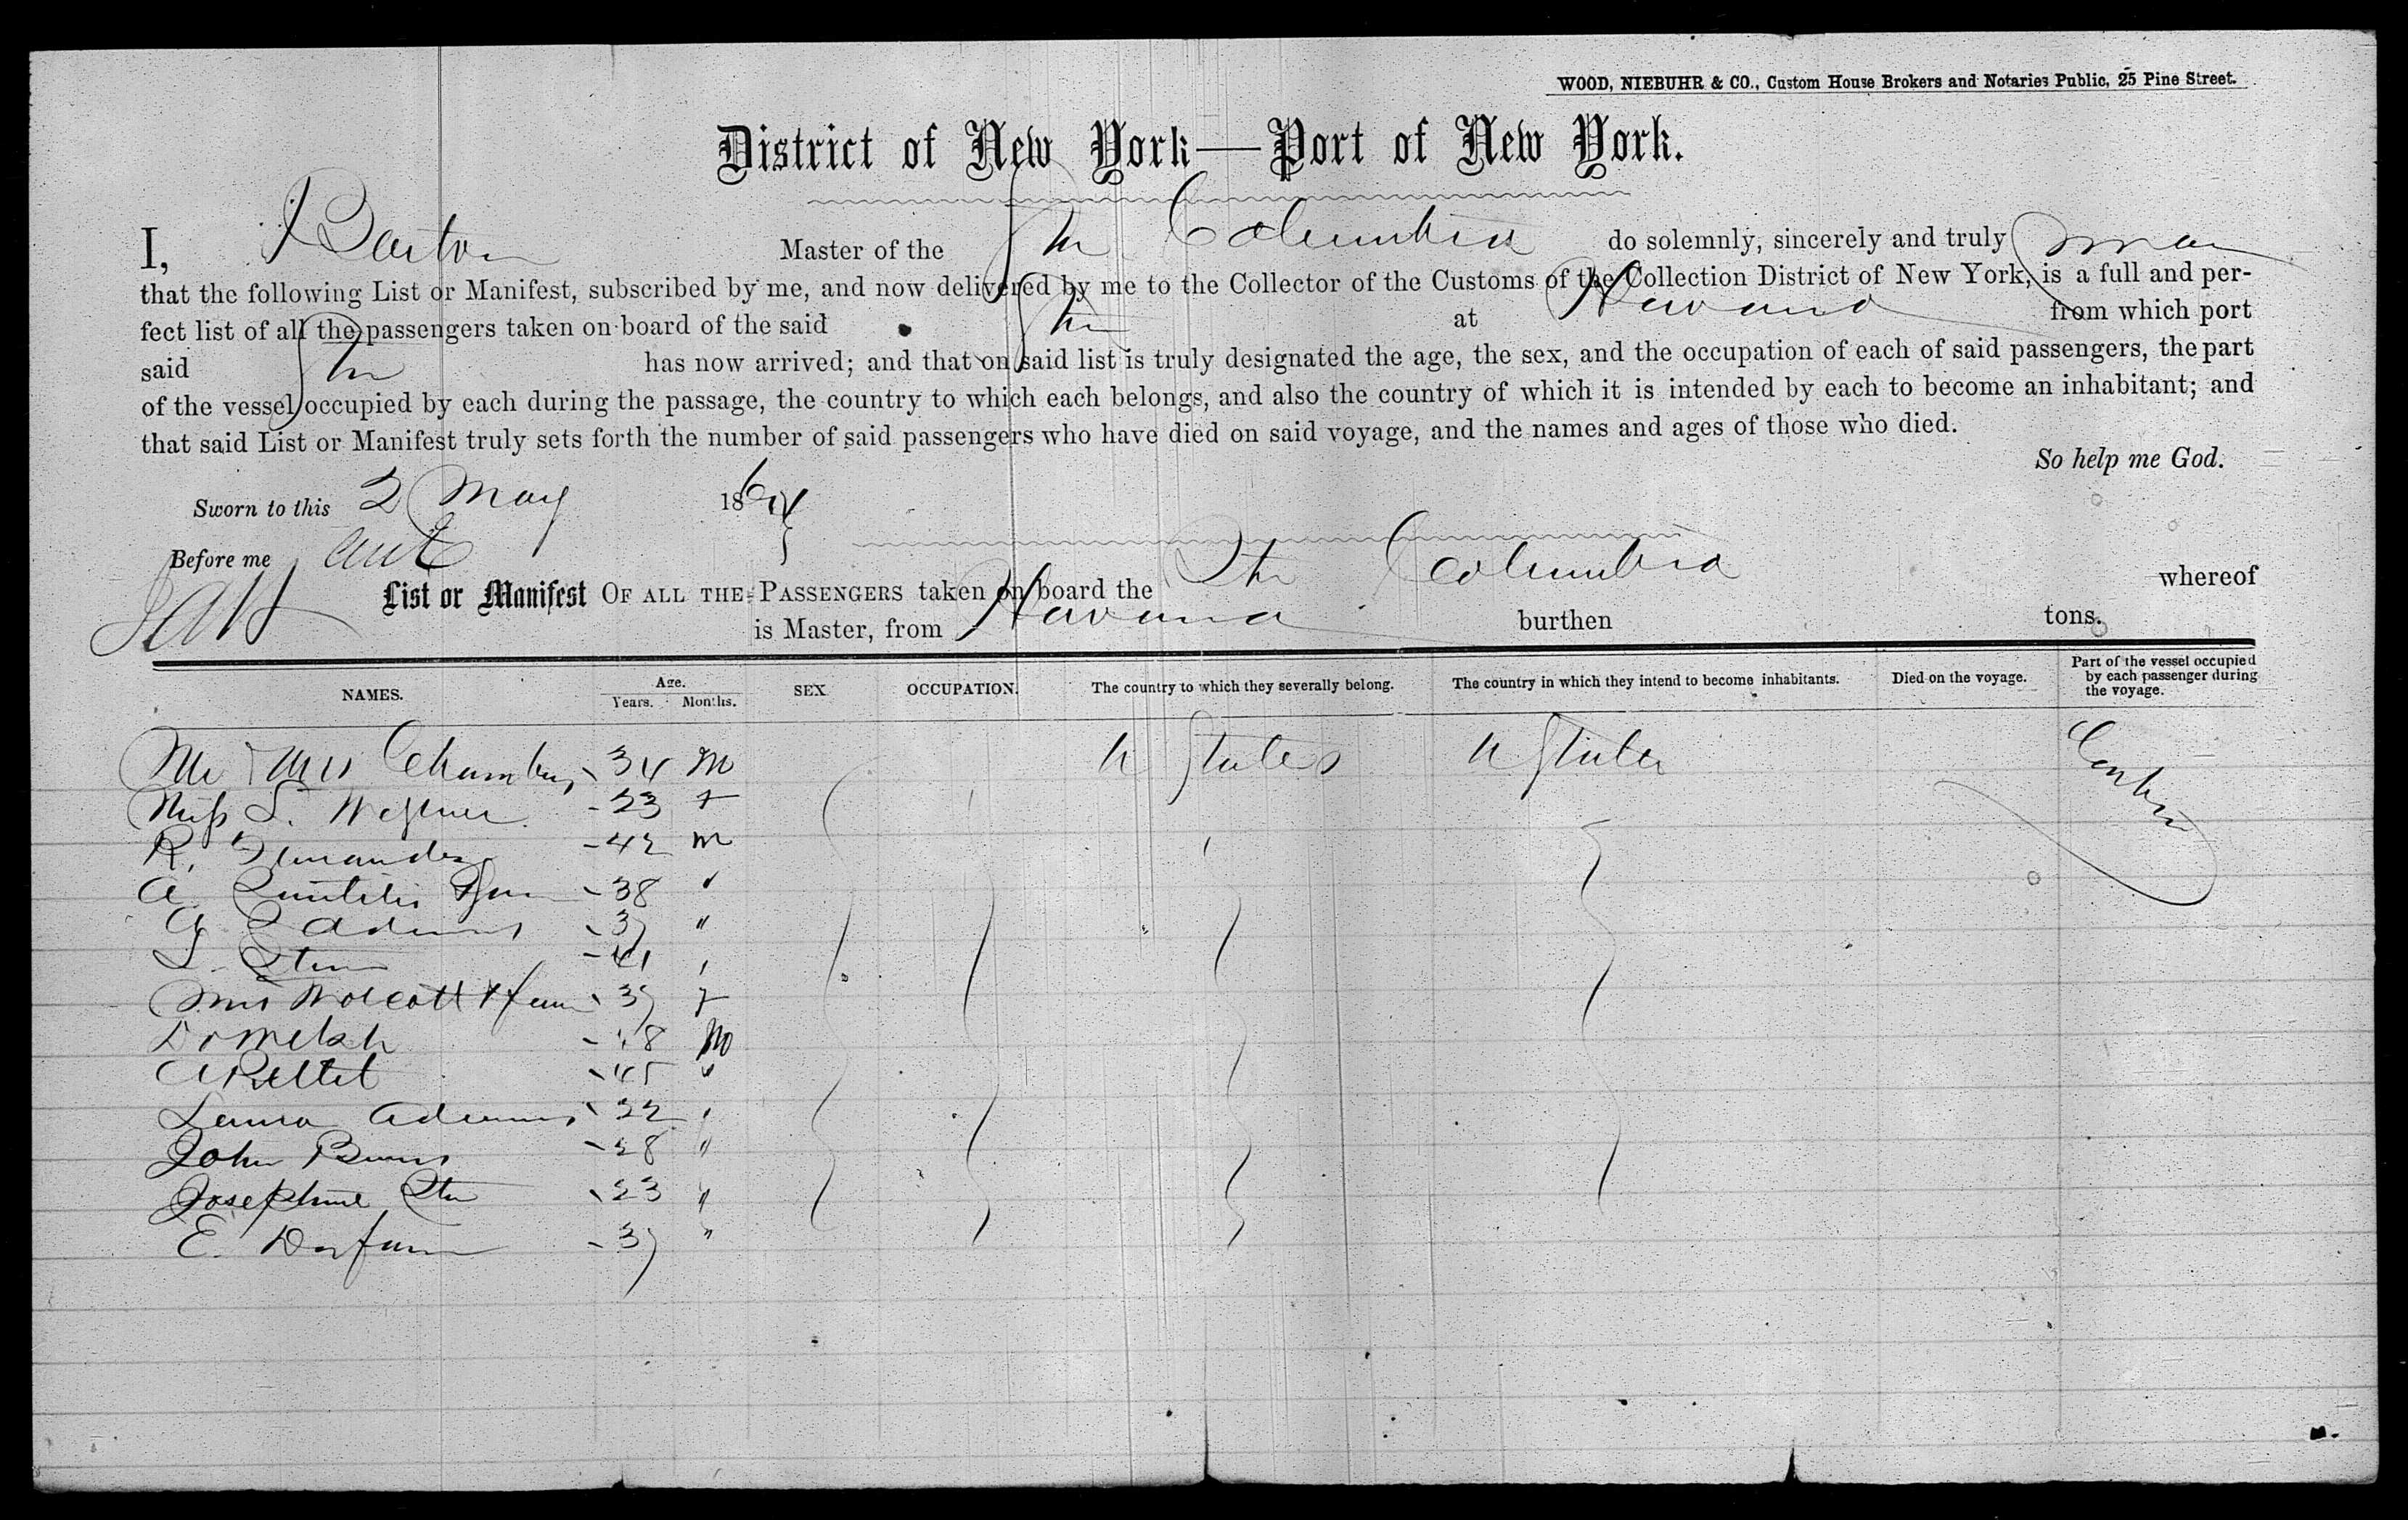 WOOD, NIEBUHR & CO., Custom House Brokers and Notaries Public, 25 Pine Street.
District of New York—Port of New York.
I, J Barton Master of the Str Columbia do solemnly, sincerely and truly swear
that the following List or Manifest, subscribed by me, and now delivered by me to the Collector of the Customs of the Collection District of New York, is a full and per-
fect list of all the passengers taken on board of the said Str at Havana from which port
said Str has now arrived; and that on said list is truly designated the age, the sex, and the occupation of each of said passengers, the part
of the vessel occupied by each during the passage, the country to which each belongs, and also the country of which it is intended by each to become an inhabitant; and
that said List or Manifest truly sets forth the number of said passengers who have died on said voyage, and the names and ages of those who died.
So help me God.
Sworn to this 2 May 18
Before me
List or Manifest OF ALL THE PASSENGERS taken on board the Str Columbia whereof
is Master, from Havana burthen tons.
NAMES. Age. Years. Months. SEX OCCUPATION. The country to which they severally belong. The country in which they intend to become inhabitants. Died on the voyage. Part of the vessel occupied by each passenger during the voyage.
Mr & Mrs Chambers 34 M U States U States Cabin
Miss S. 23 F
R. Fernandez 42 m
A. 38 "
G S Adams 37 "
S. Stern 41 "
Mrs Wolcott & fam 37 F
Dr Welsh 48 M
A 45 "
Laura Adams 22 "
John Burns 28 "
Josephine 23 "
E. 37 "